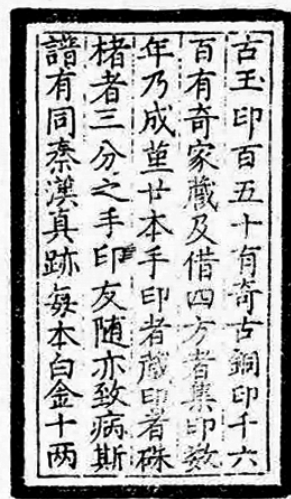 古玉印百五十有奇古銅印千六
百有奇家藏及借四方者集印數
年乃成堇廿本手印者藏印者硃
楮者三分之手印友随亦致病斯
譜有同秦漢真跡每本白金十两